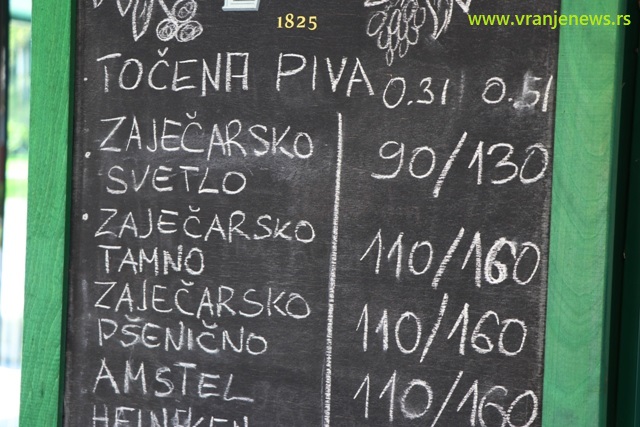 www.vranjenews.rs
1825
TOČENA PIVA 0.3l 0.5l
ZAJEČARSKO
SVETLO 90/130
ZAJEČARSKO
TAMNO 110/160
ZAJEČARSKO
PŠENIČNO 110/160
AMSTEL 110/160
HEINEKEN